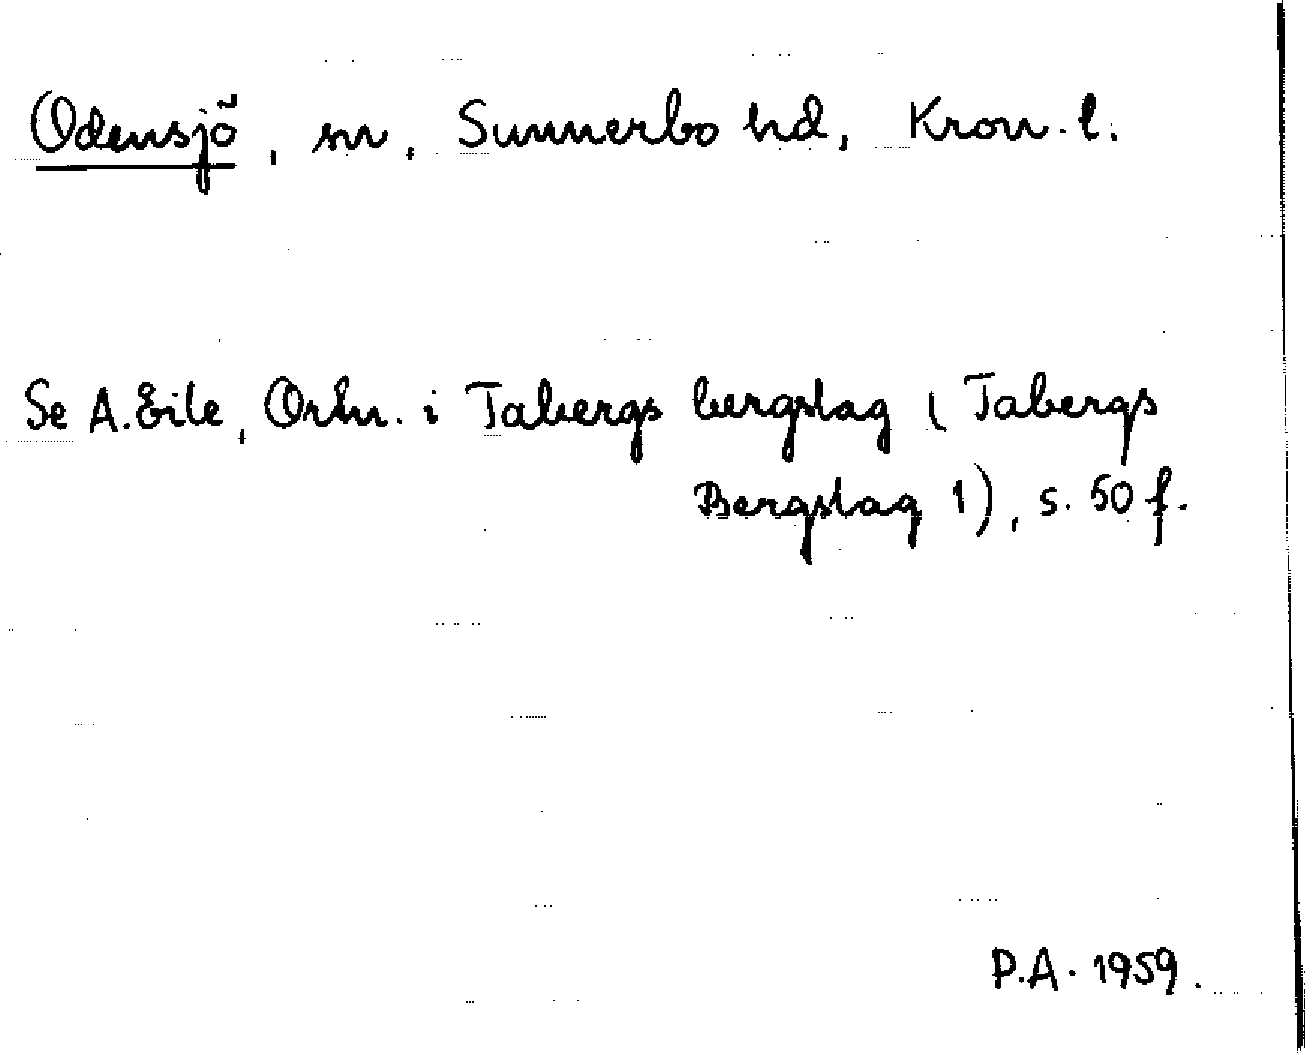 Odensjö, sn, Sunnerbo hd, Kron. l.
Se A. Eile, Ortn. i Tabergs bergslag (Tabergs
Bergslag 1), s. 50 f.
P.A. 1959.